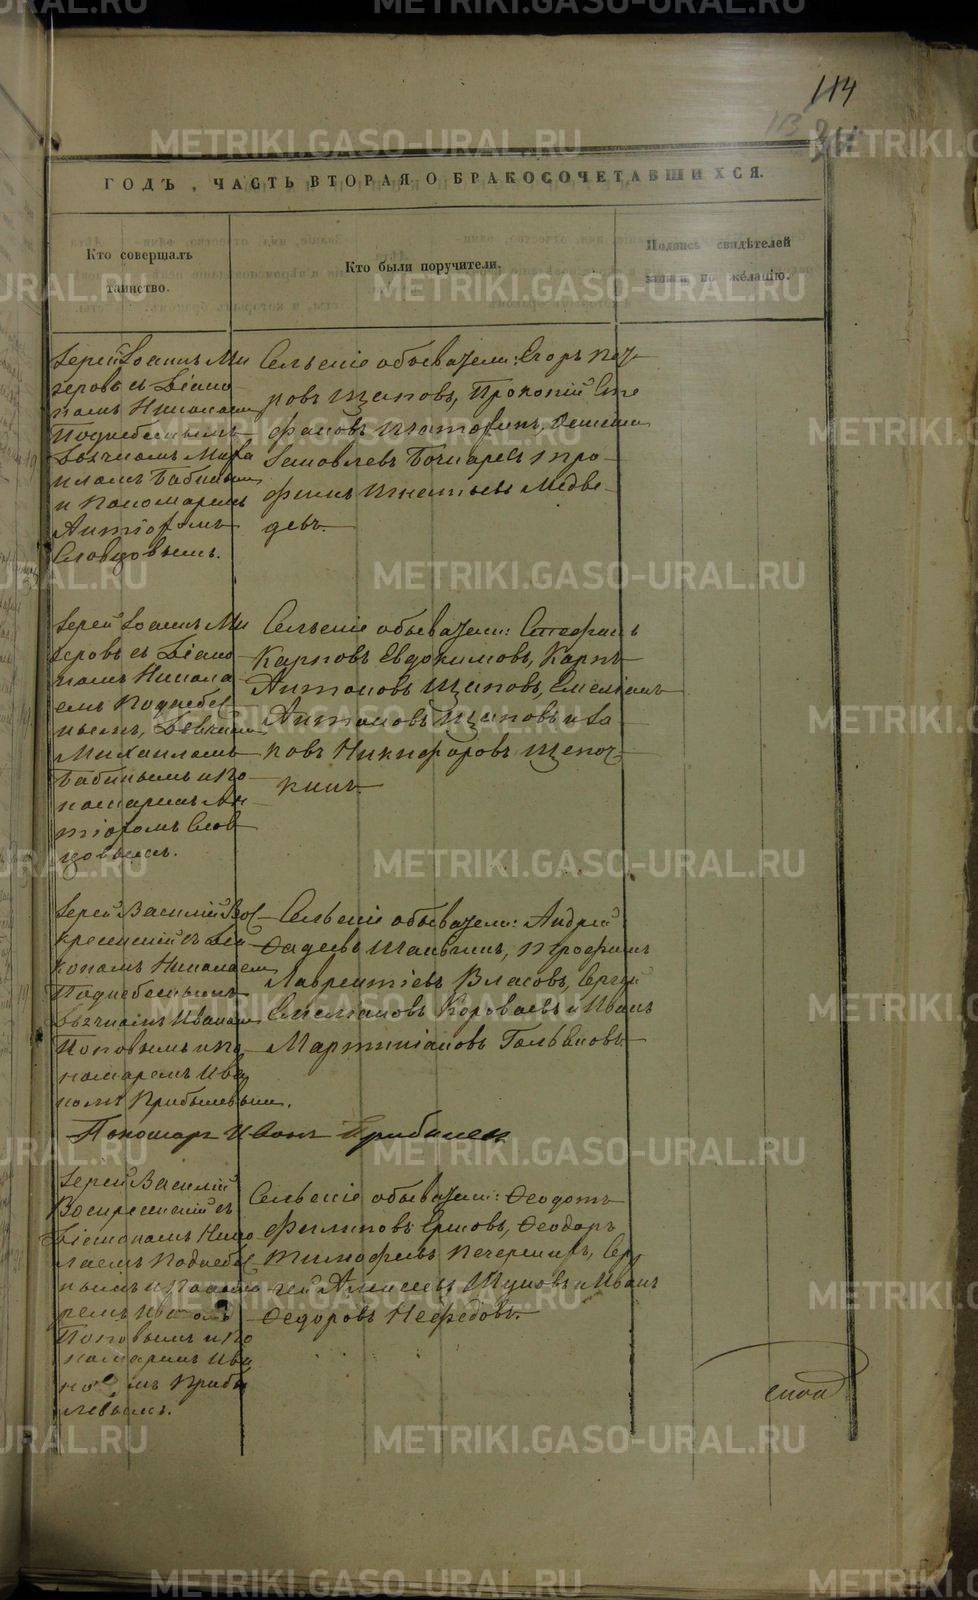 114
113
ГОДЪ, ЧАСТЬ ВТОРАЯ О БРАКОСОЧЕТАВШИХСЯ.
Кто совершалъ таинство.
Кто были поручители.
Подпись свидѣтелей записи по желанію.
Іерей Іоаннъ Ми
перовъ съ Діако
номъ Николаемъ
Поднебеснымъ
Дьячкомъ Миха
иломъ Бабинымъ
и Пономаремъ
Антіохомъ
Словцовымъ.
Сельскіе обыватели: Егоръ Пет
ровъ Щаповъ, Прокопій Сте
фановъ
Іаковлевъ Бочкаревъ Тро
фимъ Игнатьевъ Медве
девъ.
Іерей Іоаннъ Ми
перовъ съ Діако
номъ Никола
емъ Поднебес
нымъ, Дьячкомъ
Михаиломъ
Бабинымъ и По
номаремъ Ан
тіохомъ Слов
цовымъ.
Сельскіе обыватели: Стефанъ
Карповъ Евдокимовъ, Карпъ
Антоновъ Щаповъ, Емеліанъ
Антоновъ Щаповъ и Іа
ковъ Никифоровъ Щепоч
кинъ
Іерей Василій Вос
кресенскій съ Діа
кономъ Николаем
Поднебеснымъ
Дьячкомъ Иваном
Поповымъ и По
номаремъ Ива
номъ Прибылевым.
Сельскіе обыватели: Андрей
Ѳадеевъ Трофимъ
Лаврентіевъ Власовъ, Сергей
Емеліановъ Короваевъ и Иванъ
Мартиніановъ Голвановъ
Пономарь Иванъ Прибылевъ
Іерей Василій
Воскресенскій съ
Діакономъ Нико
лаемъ Поднебес
нымъ и Понома
ремъ
Поповымъ и По
номаремъ Ива
номъ Прибы
левымъ.
Сельскіе обыватели: Ѳеодотъ
Филиповъ Ершовъ, Ѳеодоръ
Тимофеевъ Печеркинъ, Сер
гей Алексеевъ и Иванъ
Ѳедоровъ Нефедовъ.
METRIKI.GASO-URAL.RU